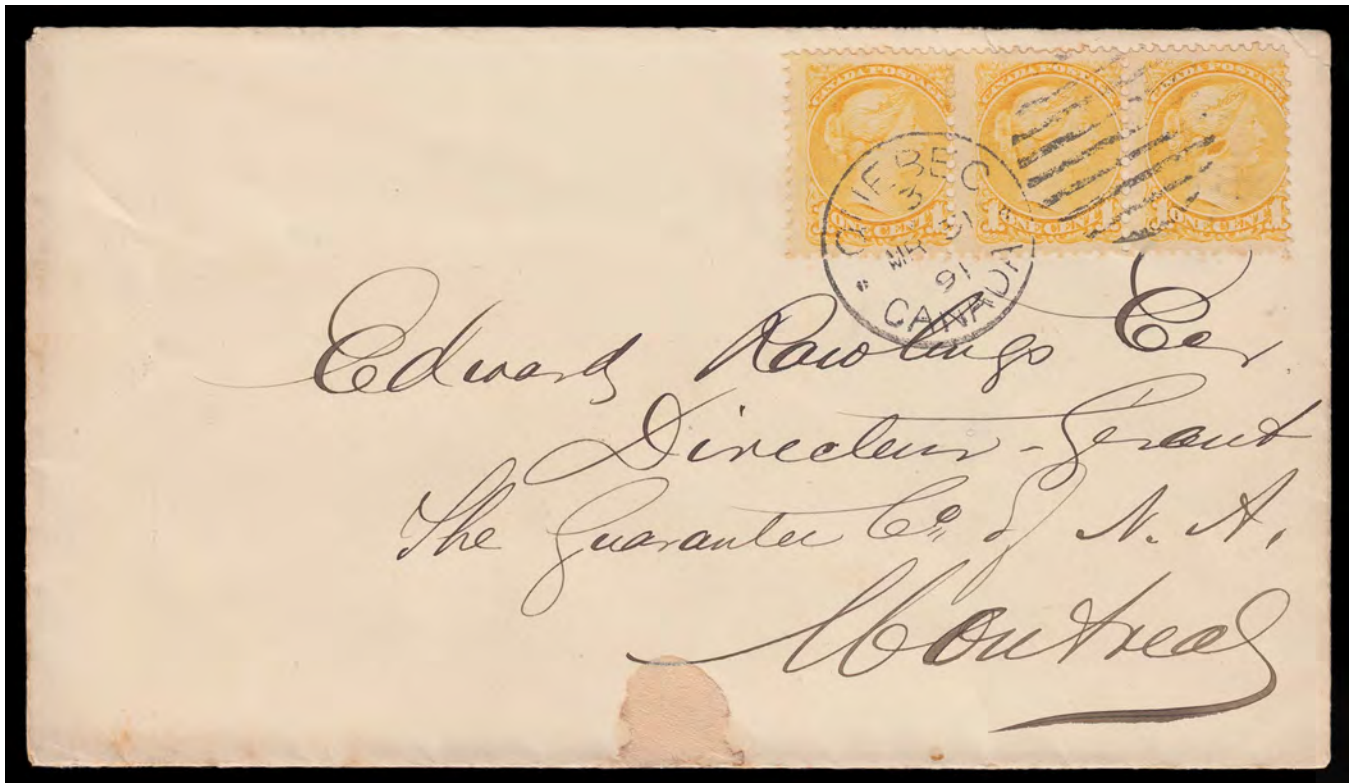 CANADA POSTAGE CANADA POSTAGE CANADA POSTAGE
1 ONE CENT 1 1 ONE CENT 1 1 ONE CENT 1
QUEBEC
3
MR 31
91
CANADA
Edward Rawlings Ecr
Directeur-Gerant
The Guarantee Co. of N. A.
Montreal